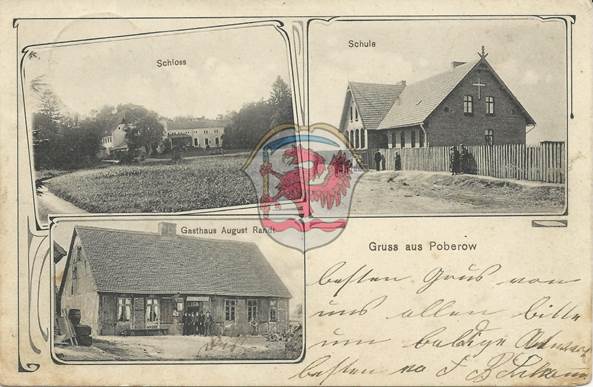 Schloss
Schule
Gasthaus August Randt
Gruss aus Poberow
besten Grus von
uns allen bitte
um baldige
besten